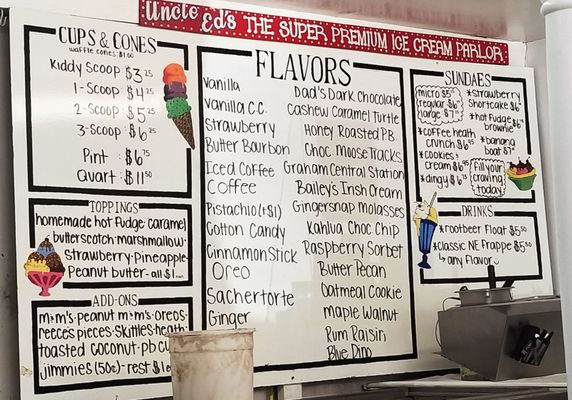 Uncle Ed's THE SUPER, PREMIUM ICE CREAM PARLOR.
CUPS & CONES
waffle cones: $1.00
Kiddy Scoop: $3.25
1-Scoop: $4.25
2-Scoop: $5.25
3-Scoop: $6.25
Pint: $6.75
Quart: $11.50
TOPPINGS
homemade hot fudge·caramel
butterscotch·marshmallow·
strawberry·Pineapple·
Peanut butter·all $1
ADD-ONS
m&m's·peanut m&m's·oreos·
reece's pieces·skittles·heath·
toasted coconut·pb cu
jimmies (50¢)·rest $1
FLAVORS
Vanilla
Vanilla C.C.
Strawberry
Butter Bourbon
Iced Coffee
Coffee
Pistachio (+$1)
Cotton Candy
Cinnamon Stick
Oreo
Sachertorte
Ginger
Dad's Dark Chocolate
Cashew Caramel Turtle
Honey Roasted P.B.
Choc. Moose Tracks
Graham Central Station
Bailey's Irish Cream
Gingersnap Molasses
Kahlua Choc Chip
Raspberry Sorbet
Butter Pecan
Oatmeal Cookie
Maple Walnut
Rum Raisin
Blue Dino
SUNDAES
micro $5
regular $6
large $7
*coffee heath
crunch $6.95
*cookies &
cream $6.95
*dingy $6
*strawberry
Shortcake $6
*hot fudge
brownie
*banana
boat $7
fill your
craving
today
DRINKS
*rootbeer Float $5.50
*classic NE Frappe $5.50
↳ any Flavor